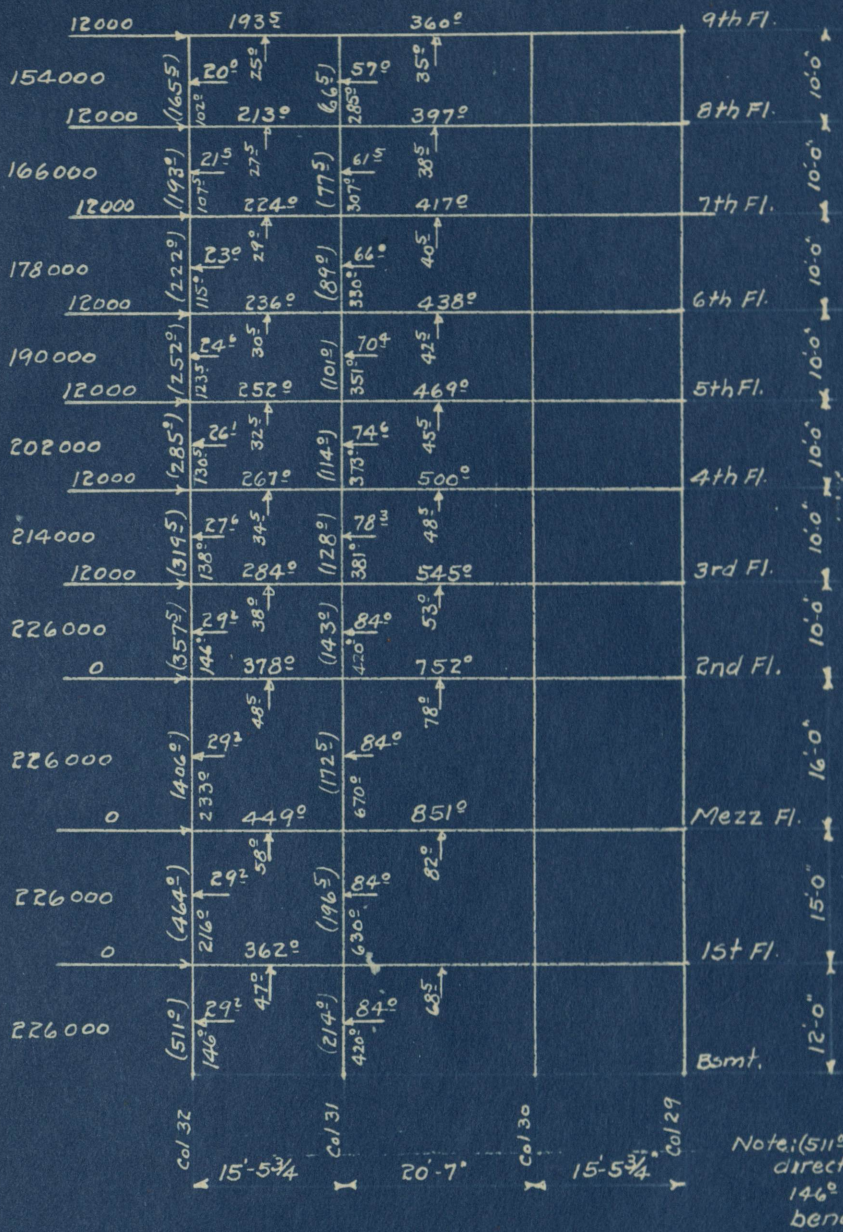 12000 193⁵ 360⁰ 9th Fl.
154000 (165⁵) 20⁰ 102⁰ 25⁰ (66⁵) 57⁰ 285⁰ 35⁰ 10'-0"
12000 213⁰ 397⁰ 8th Fl.
166000 (193⁰) 21⁵ 107⁵ 27⁵ (77⁵) 61⁵ 307⁰ 38⁵ 10'-0"
12000 224⁰ 417⁰ 7th Fl.
178000 (222⁰) 23⁰ 115⁰ 29⁰ (89⁰) 66⁰ 330⁰ 40⁵ 10'-0"
12000 236⁰ 438⁰ 6th Fl.
190000 (252⁰) 24⁶ 123⁵ 30⁵ (101⁰) 70⁴ 351⁰ 42⁵ 10'-0"
12000 252⁰ 469⁰ 5th Fl.
202000 (285⁰) 26¹ 130⁵ 32⁵ (114⁰) 74⁶ 373⁰ 45⁵ 10'-0"
12000 267⁰ 500⁰ 4th Fl.
214000 (319⁵) 27⁶ 138⁰ 34⁵ (128⁰) 78³ 381⁰ 48⁵ 10'-0"
12000 284⁰ 545⁰ 3rd Fl.
226000 (357⁵) 29² 146⁰ 38⁰ (143⁰) 84⁰ 420⁰ 53⁰ 10'-0"
0 378⁰ 752⁰ 2nd Fl.
226000 (406⁰) 29² 233⁰ 48⁵ (172⁵) 84⁰ 670⁰ 78⁰ 16'-0"
0 449⁰ 851⁰ Mezz Fl.
226000 (464⁰) 29² 216⁰ 58⁰ (196⁵) 84⁰ 630⁰ 82⁰ 15'-0"
0 362⁰ 1st Fl.
226000 (511⁰) 29² 146⁰ 47⁰ (214⁰) 84⁰ 420⁰ 68⁵ 12'-0"
Bsmt.
Col 32 Col 31 Col 30 Col 29
15'-5¾ 20'-7" 15'-5¾"
Note: (511⁰
direct
146⁰